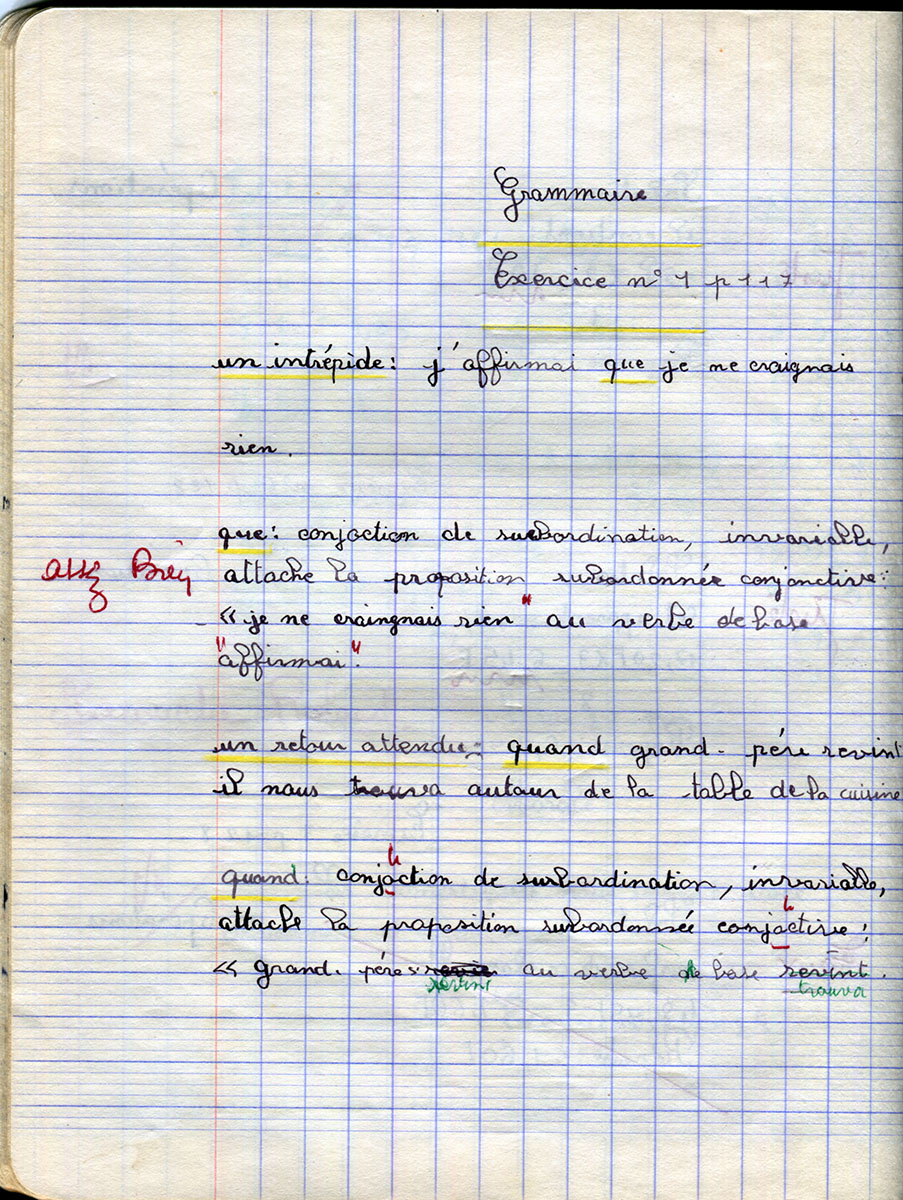 Grammaire
Exercice n° 1 p 117
un intrépide : j'affirmai que je ne craignais
rien.
que : conjoction de subordination, invariable,
assez Bien
attache la proposition subordonnée conjonctive :
« je ne craingnais rien " au verbe de base
"affirmai".
un retour attendu : quand grand-père revint
il nous trouva autour de la table de la cuisine
quand : conjoction de subordination, invariable,
attache la proposition subordonnée conjactive :
« grand-père » au verbe de base revint.
revint trouva